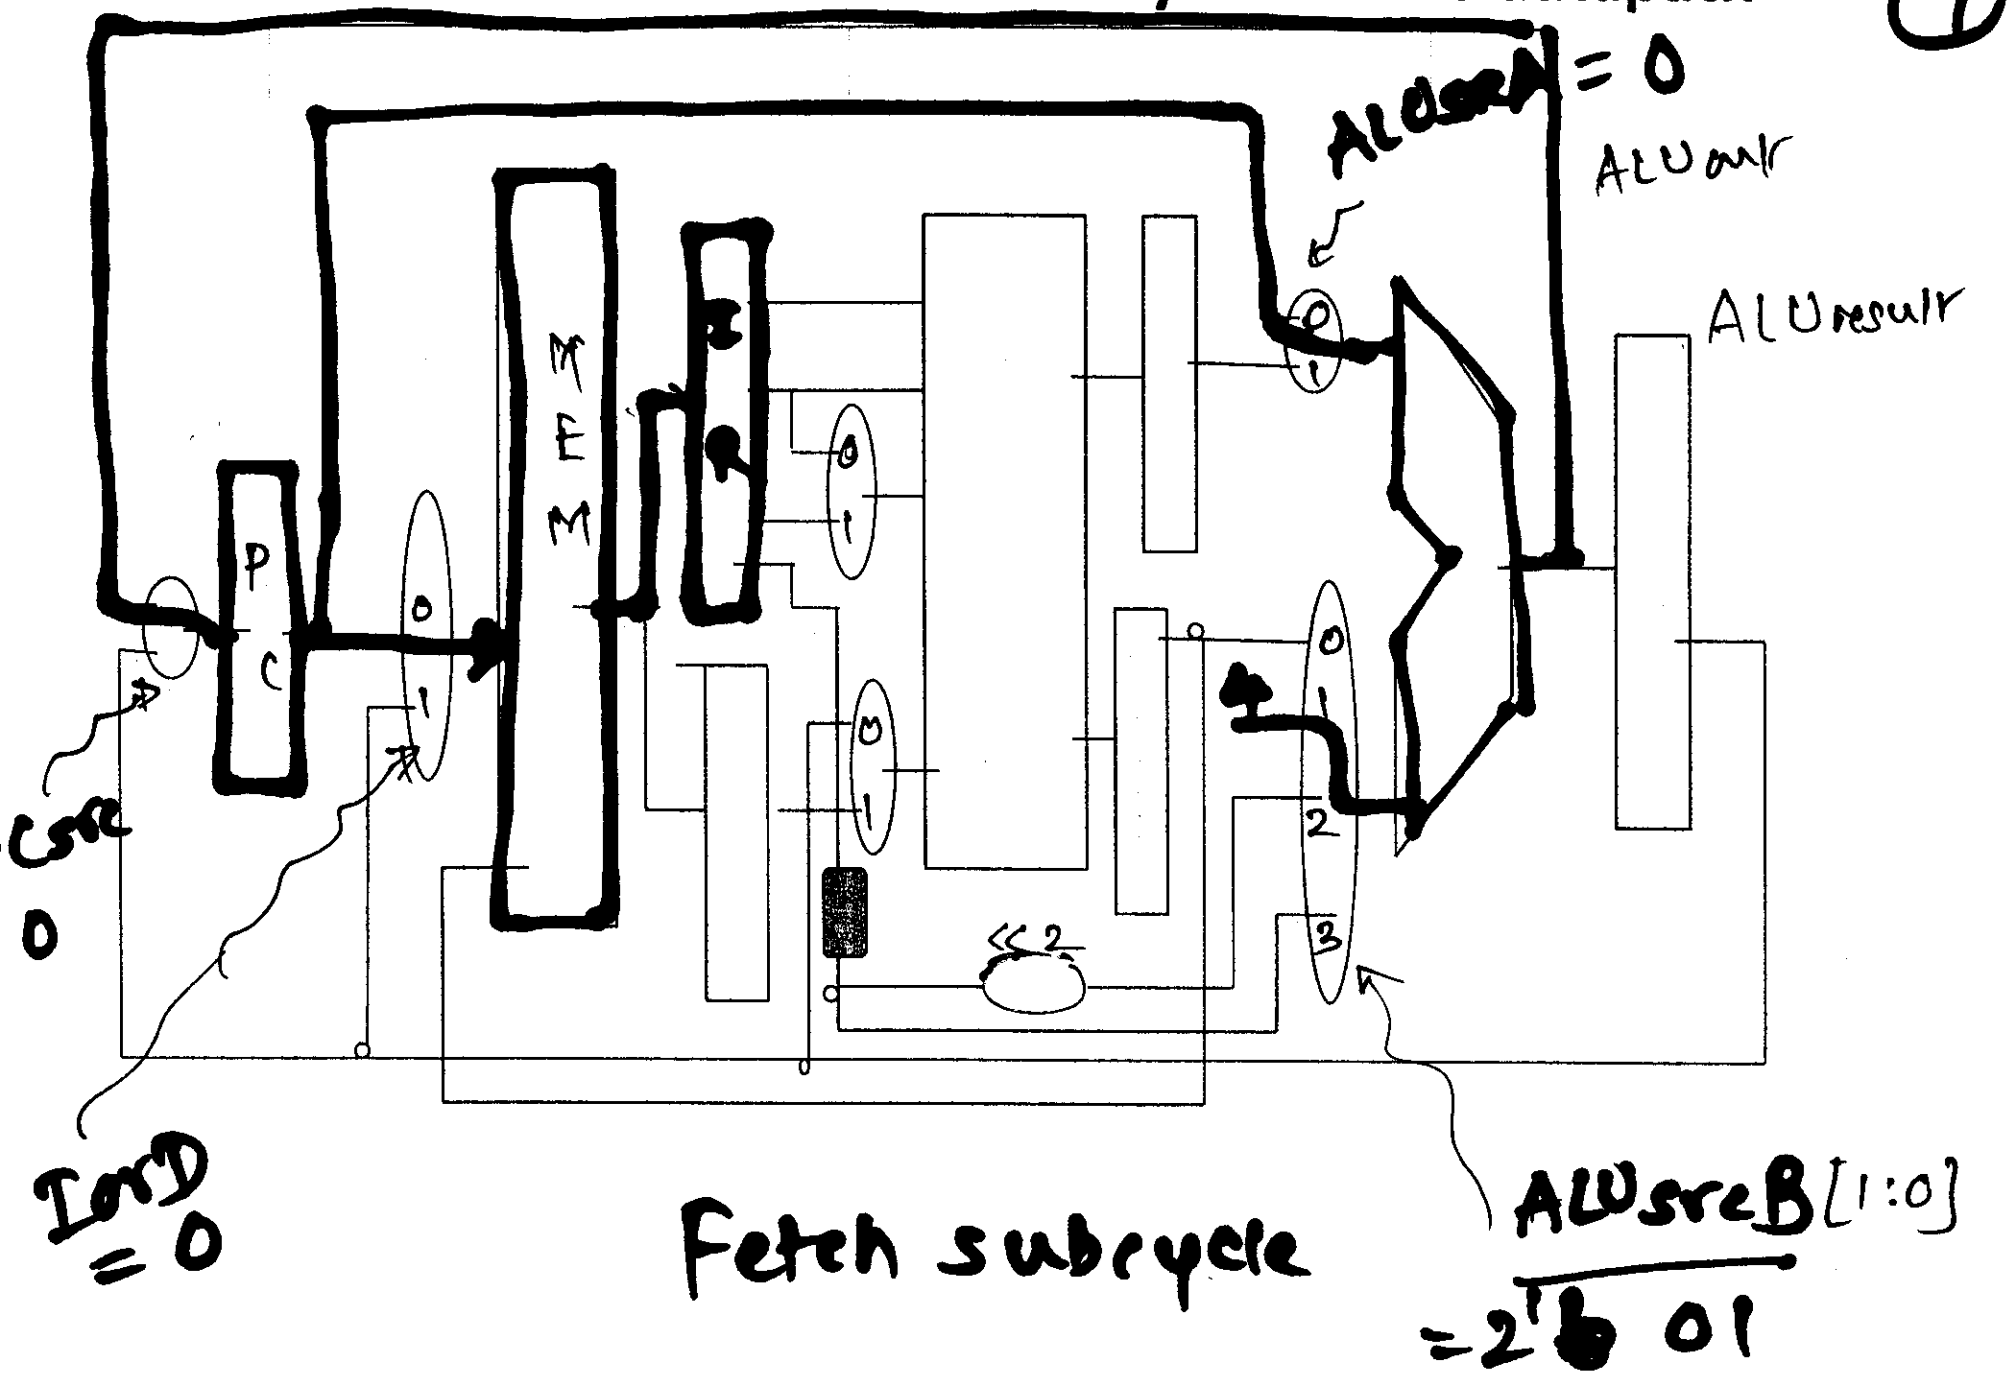 ALUsrcA = 0
ALUout
ALUresult
MEM
IR
PC
0
1
0
1
0
1
0
1
0
1
2
3
4
<< 2
Csrc
0
IorD
= 0
Fetch subcycle
ALUsrcB [1:0]
= 2'b 01